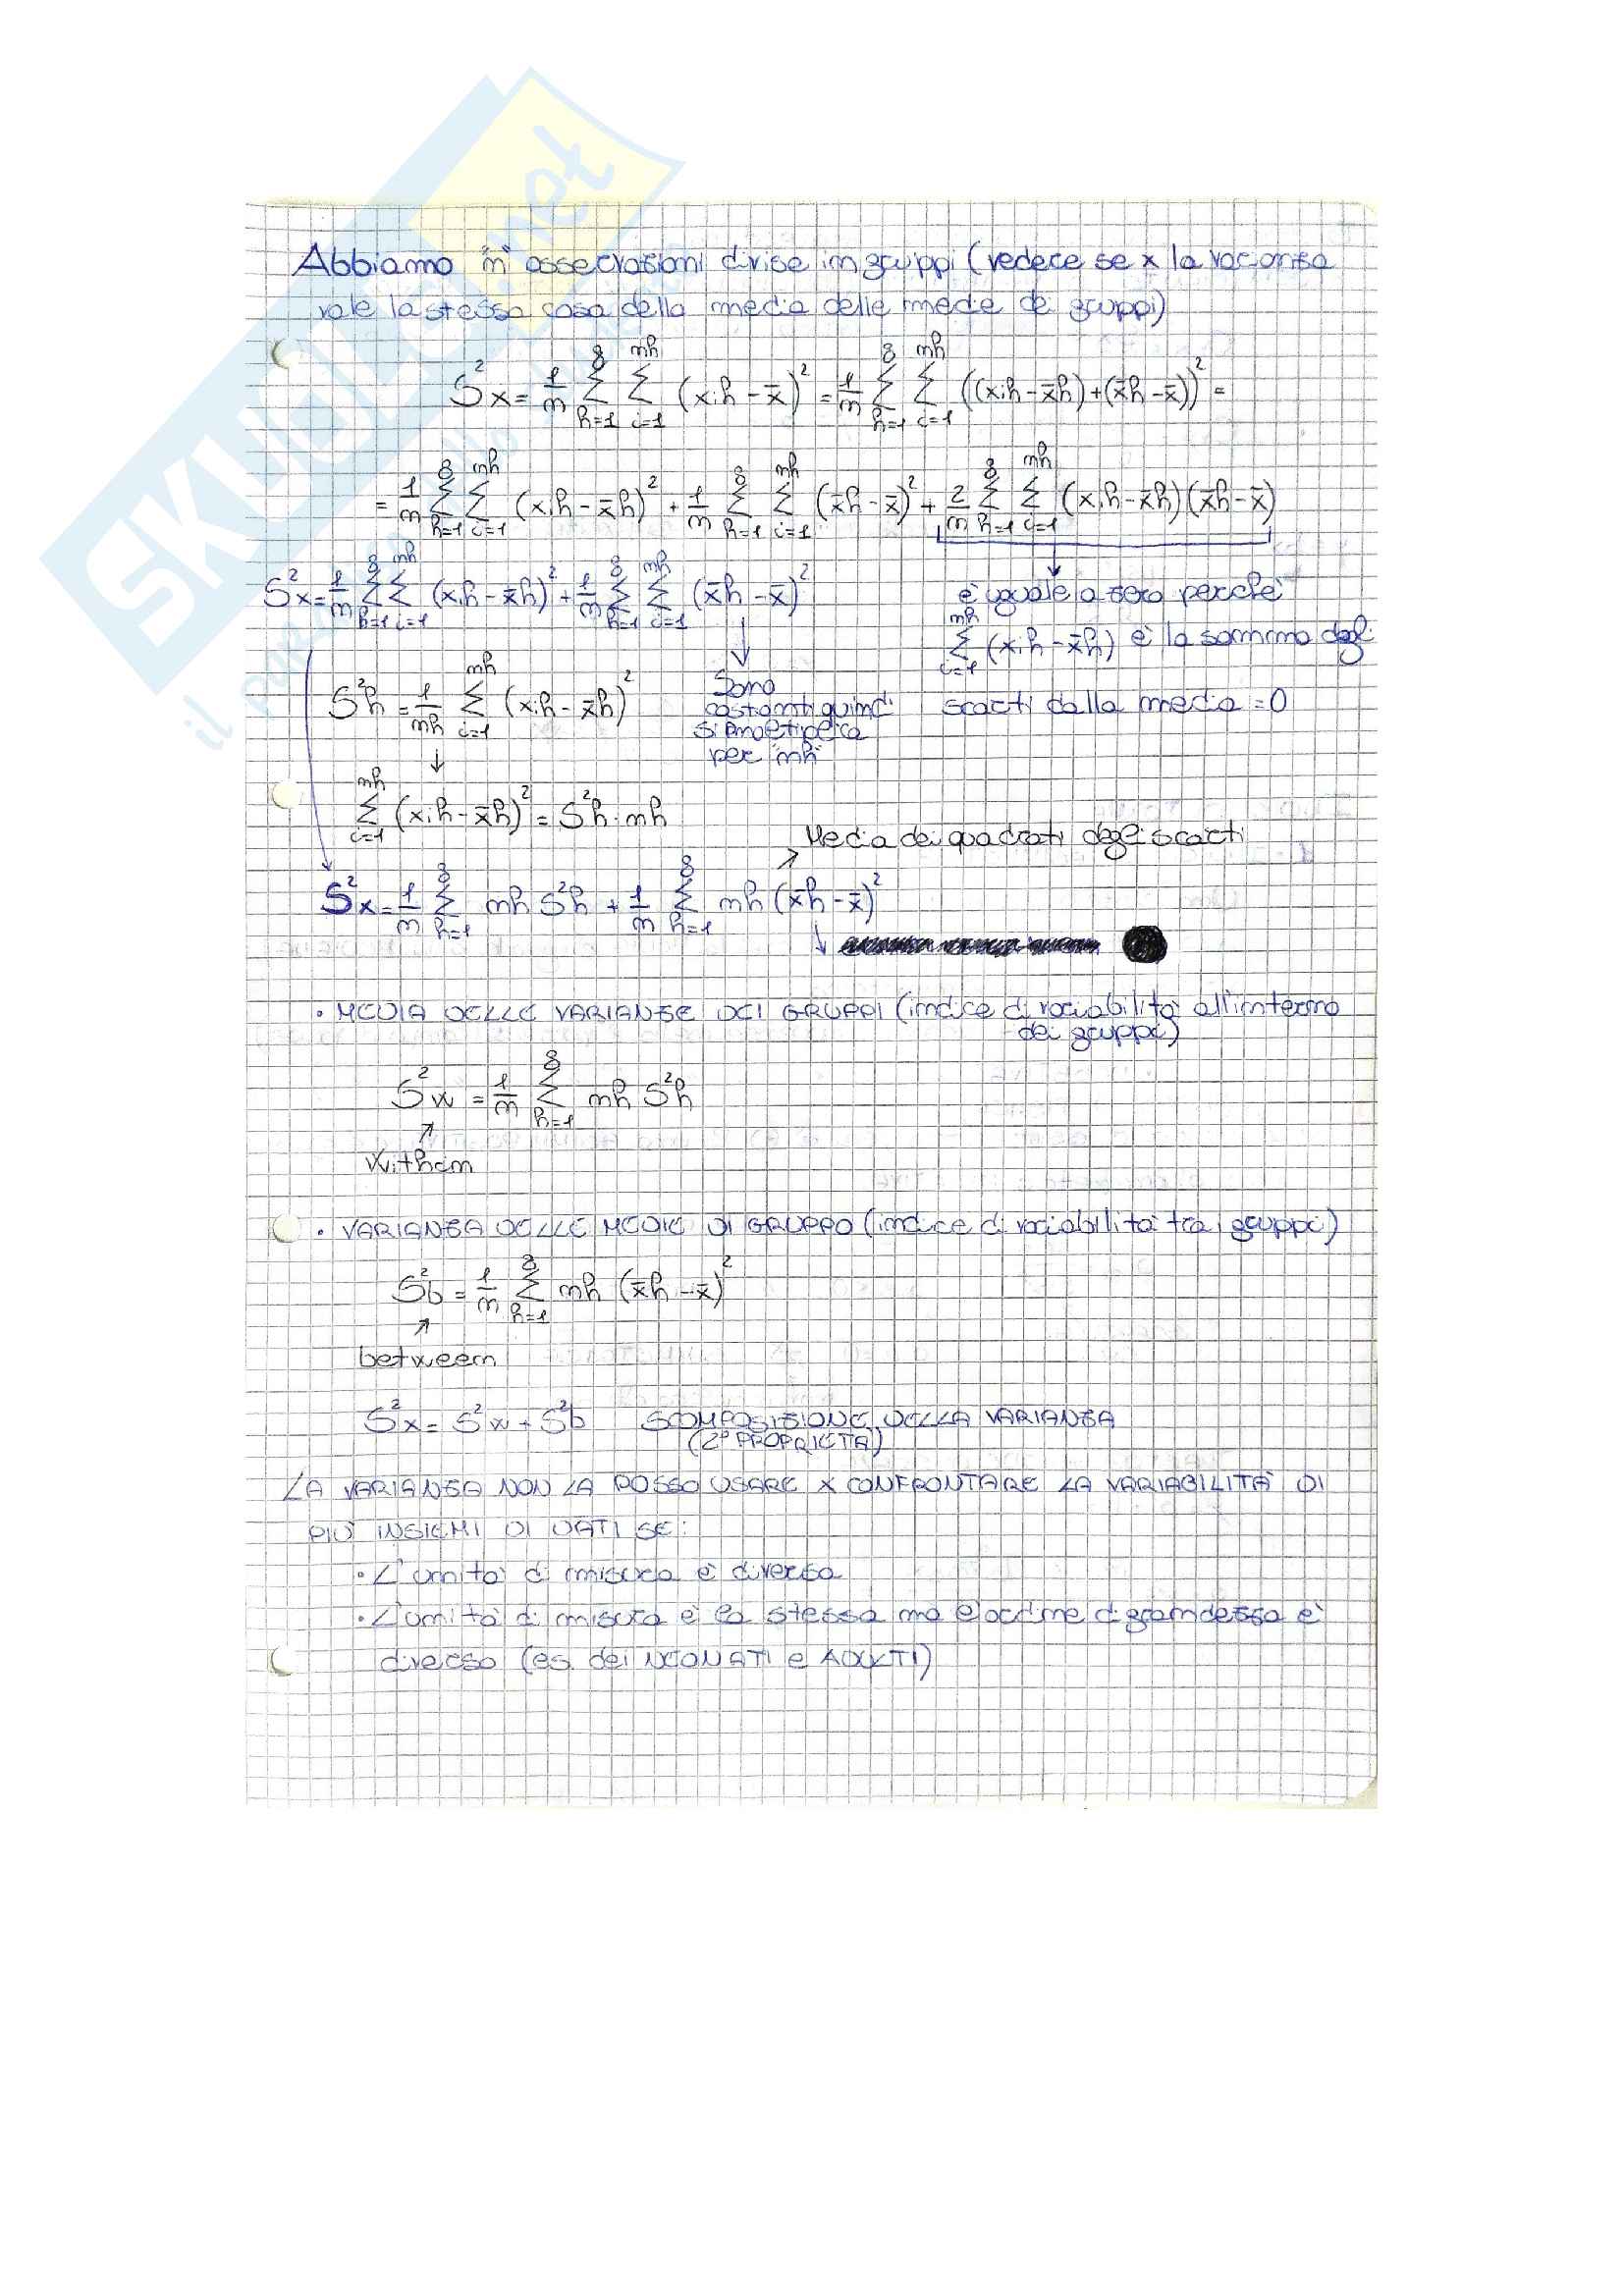 SKUOLA.net
Abbiamo "n" osservazioni divise in gruppi (vedere se x la varianza
vale la stessa cosa della media delle medie dei gruppi)
S²x = 1/n Σ(h=1→g) Σ(i=1→nh) (xih - x̄)² = 1/n Σ(h=1→g) Σ(i=1→nh) ((xih - x̄h) + (x̄h - x̄))² =
= 1/n Σ(h=1→g) Σ(i=1→nh) (xih - x̄h)² + 1/n Σ(h=1→g) Σ(i=1→nh) (x̄h - x̄)² + 2/n Σ(h=1→g) Σ(i=1→nh) (xih - x̄h)(x̄h - x̄)
S²x = 1/n Σ(h=1→g) Σ(i=1→nh) (xih - x̄h)² + 1/n Σ(h=1→g) Σ(i=1→nh) (x̄h - x̄)²
è uguale a zero perché
Σ(i=1→nh) (xih - x̄h) è la somma degli
scarti dalla media = 0
S²h = 1/nh Σ(i=1→nh) (xih - x̄h)²
Sono
costanti quindi
si moltiplica
per "nh"
Σ(i=1→nh) (xih - x̄h)² = S²h · nh
Media dei quadrati degli scarti
S²x = 1/n Σ(h=1→g) nh S²h + 1/n Σ(h=1→g) nh (x̄h - x̄)²
• MEDIA DELLE VARIANZE DEI GRUPPI (indice di variabilità all'interno
dei gruppi)
S²w = 1/n Σ(h=1→g) nh S²h
within
• VARIANZA DELLE MEDIE DI GRUPPO (indice di variabilità tra i gruppi)
S²b = 1/n Σ(h=1→g) nh (x̄h - x̄)²
between
S²x = S²w + S²b SCOMPOSIZIONE DELLA VARIANZA
(2° PROPRIETÀ)
LA VARIANZA NON LA POSSO USARE X CONFRONTARE LA VARIABILITÀ DI
PIÙ INSIEMI DI DATI SE:
• L'unità di misura è diversa
• L'unità di misura è la stessa ma l'ordine di grandezza è
diverso (es. dei NEONATI e ADULTI)